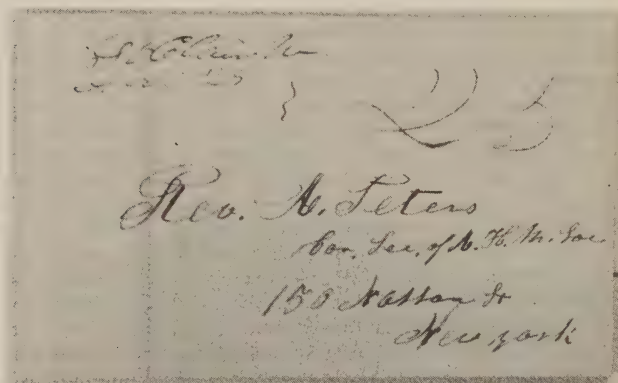 25
Rev. A. Peters
Cor. Sec. of A. H. M. Soc.
150 Nassau St
New york